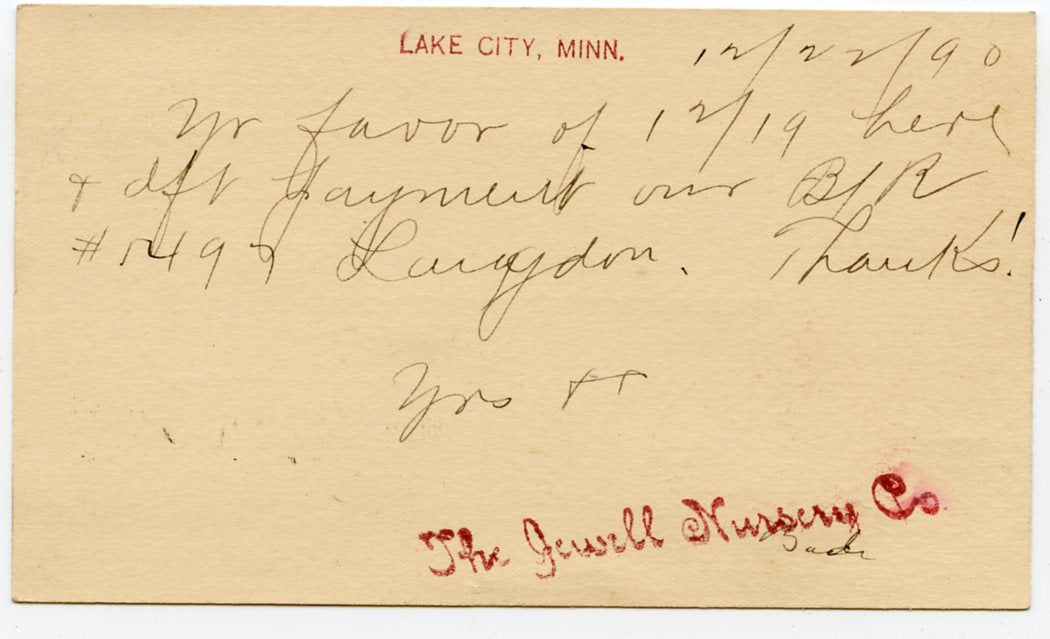 LAKE CITY, MINN. 12/22/90
Yr favor of 12/19 here
+ dft payment our B/R
Langdon. Thanks!
Yrs tt
The Jewell Nursery Co